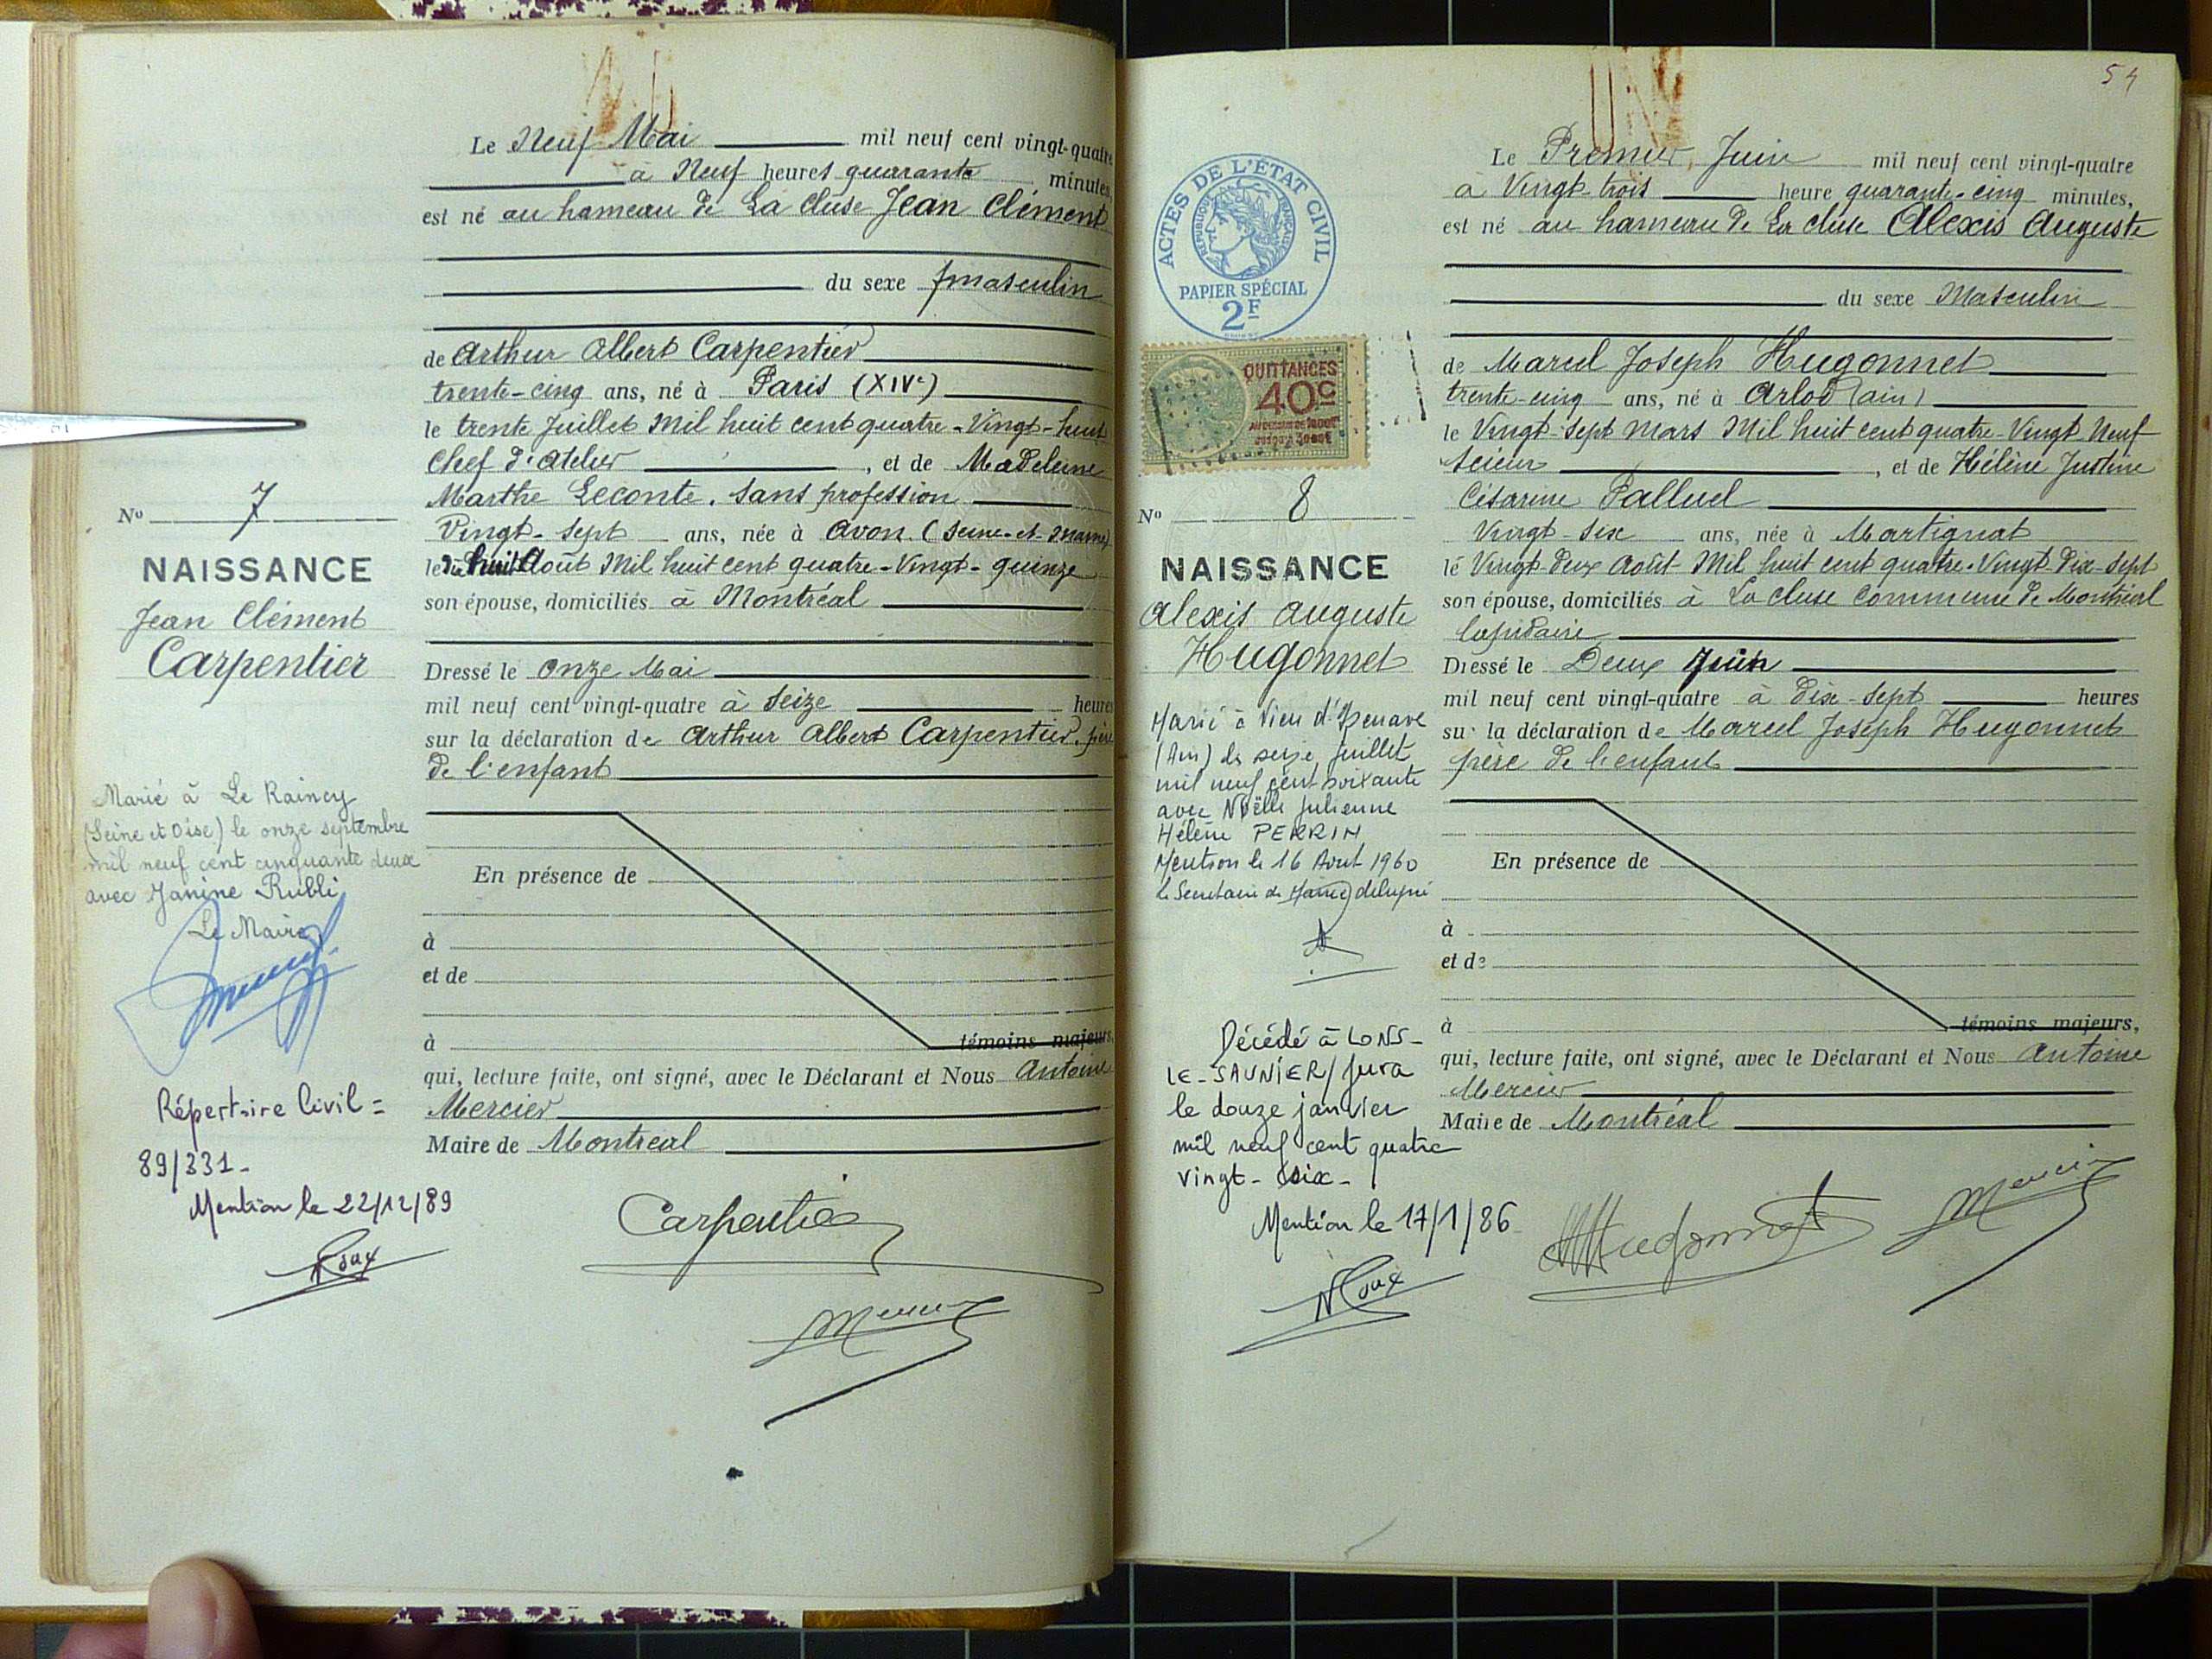 Le Neuf Mai mil neuf cent vingt-quatre
à Neuf heures quarante minutes,
est né au hameau de La Cluse Jean Clément
du sexe masculin
de Arthur Albert Carpentier
trente-cinq ans, né à Paris (XIVe)
le trente Juillet Mil huit cent quatre-Vingt-huit
Chef d'atelier, et de Madeleine
Marthe Leconte. Sans profession
Vingt-sept ans, née à Avon (Seine-et-Marne)
le dix huit Août Mil huit cent quatre-Vingt-quinze
son épouse, domiciliés à Montréal
Dressé le onze Mai
mil neuf cent vingt-quatre à seize heures
sur la déclaration de Arthur Albert Carpentier, père
de l'enfant
En présence de
à
et de
à témoins majeurs,
qui, lecture faite, ont signé, avec le Déclarant et Nous Antoine
Mercier
Maire de Montréal
Carpentier
Mercier
No 7
NAISSANCE
Jean Clément
Carpentier
Marié à Le Raincy
(Seine et Oise) le onze septembre
mil neuf cent cinquante deux
avec Janine Rubli
Le Maire
Répertoire Civil =
89/331-
Mention le 22/12/89
54
ACTES DE L'ÉTAT CIVIL
RÉPUBLIQUE FRANÇAISE
PAPIER SPÉCIAL
2F
QUITTANCES
40c
No 8
NAISSANCE
Alexis Auguste
Hugonnet
Marié à Vieu d'Izenave
(Ain) le seize Juillet
mil neuf cent soixante
avec Noëlle Julienne
Hélène PERRIN
Mention le 16 Aout 1960
Le Secrétaire de Mairie délégué
Décédé à LONS-
LE-SAUNIER/Jura
le douze janvier
mil neuf cent quatre
vingt-six-
Mention le 17/1/86
Le Premier Juin mil neuf cent vingt-quatre
à Vingt-trois heure quarante-cinq minutes,
est né au hameau de La cluse Alexis Auguste
du sexe Masculin
de Marcel Joseph Hugonnet
trente-cinq ans, né à Arlod (Ain)
le Vingt-Sept Mars Mil huit cent quatre-Vingt Neuf
Scieur, et de Hélène Justine
Césarine Palluel
Vingt-six ans, née à Martignat
le Vingt-Deux Août Mil huit cent quatre-Vingt-Dix-Sept
son épouse, domiciliés à La cluse commune de Montréal
lapidaire
Dressé le Deux Juin
mil neuf cent vingt-quatre à Dix-sept heures
sur la déclaration de Marcel Joseph Hugonnet
père de l'enfant
En présence de
à
et de
à témoins majeurs,
qui, lecture faite, ont signé, avec le Déclarant et Nous Antoine
Mercier
Maire de Montréal
Hugonnet
Mercier